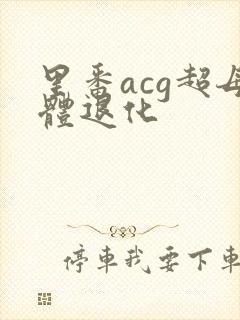 里番acg超母
體退化
停車我要下車